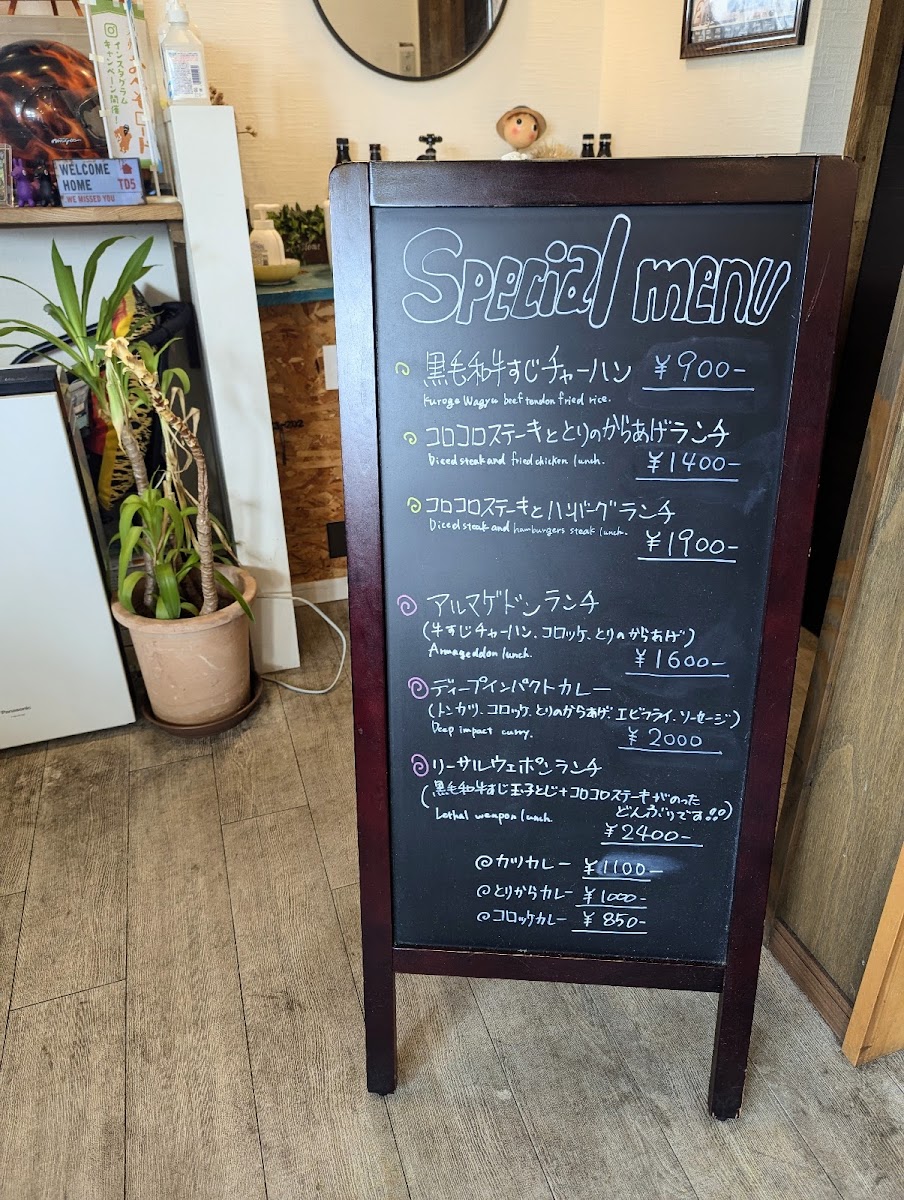 インスタグラム
キャンペーン開催!
WELCOME
HOME TD5
WE MISSED YOU
Panasonic
Special menu
黒毛和牛すじチャーハン ¥900-
Kuroge Wagyu beef tendon fried rice.
コロコロステーキととりのからあげランチ
Diced steak and fried chicken lunch. ¥1400-
コロコロステーキとハンバーグランチ
Diced steak and hamburgers steak lunch.
¥1900-
アルマゲドンランチ
(牛すじチャーハン、コロッケ、とりのからあげ)
Armageddon lunch. ¥1600-
ディープインパクトカレー
(トンカツ、コロッケ、とりのからあげ、エビフライ、ソーセージ)
Deep impact curry. ¥2000
リーサルウェポンランチ
(黒毛和牛すじ玉子とじ+コロコロステーキがのった
どんぶりです!!)
Lethal weapon lunch.
¥2400-
@カツカレー ¥1100-
@とりからカレー ¥1000-
@コロッケカレー ¥850-